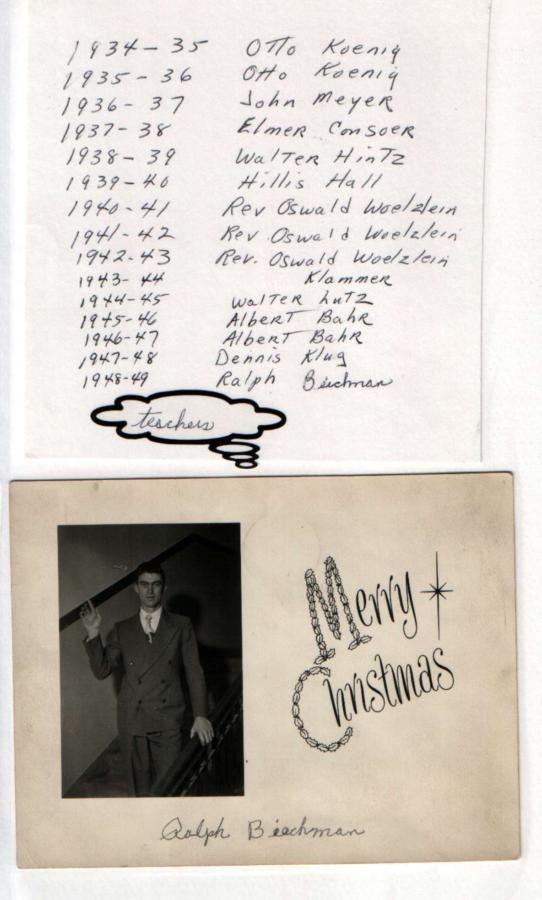 1934-35 Otto Koenig
1935-36 Otto Koenig
1936-37 John Meyer
1937-38 Elmer Consoer
1938-39 Walter Hintz
1939-40 Hillis Hall
1940-41 Rev Oswald Woelzlein
1941-42 Rev Oswald Woelzlein
1942-43 Rev. Oswald Woelzlein
1943-44 Klammer
1944-45 Walter Lutz
1945-46 Albert Bahr
1946-47 Albert Bahr
1947-48 Dennis Klug
1948-49 Ralph Biechman
teachers
Merry
Christmas
Ralph Biechman